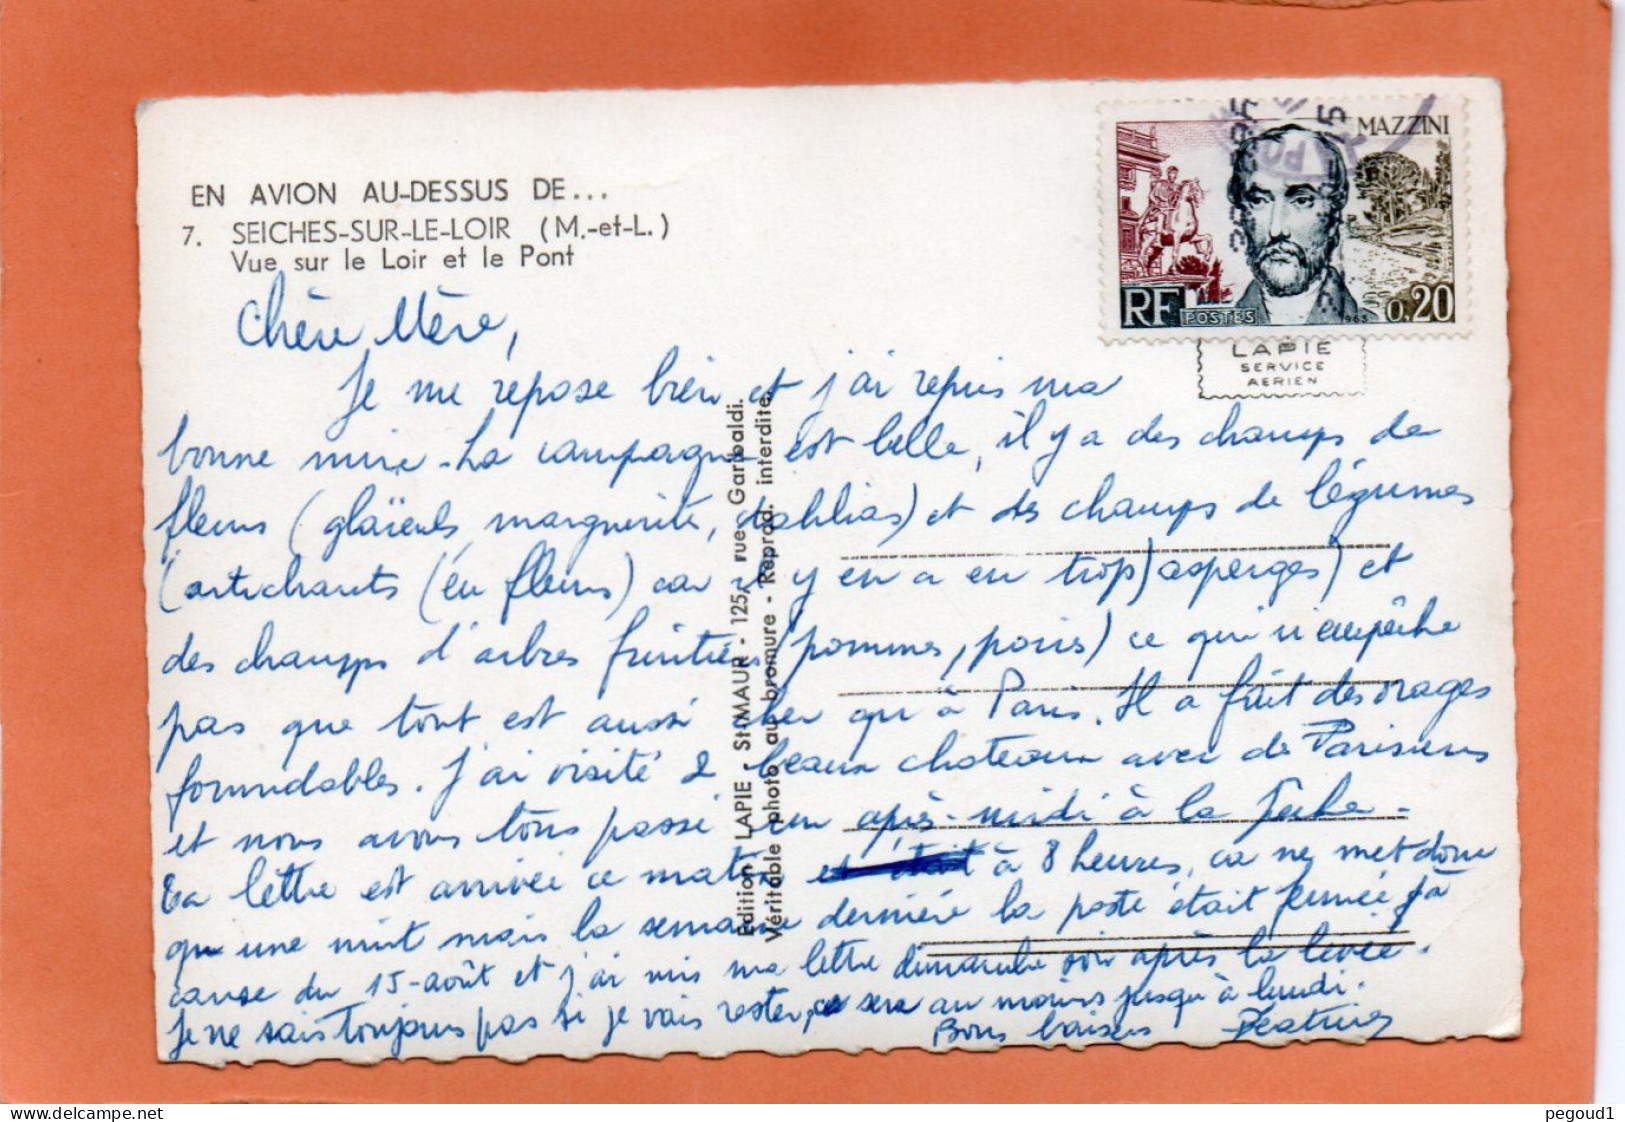 EN AVION AU-DESSUS DE...
7. SEICHES-SUR-LE-LOIR (M.-et-L.)
Vue sur le Loir et le Pont
MAZZINI
RF POSTES
0,20
1963
LAPIE
SERVICE
AERIEN
Edition LAPIE St-MAUR - 125, rue Garibaldi.
Véritable photo au bromure - Reprod. interdite.
Chère Mère,
Je me repose bien et j'ai repris ma
bonne mine. La campagne est belle, il y a des champs de
fleurs (glaïeuls, marguerite, dahlias) et des champs de légumes
(artichauts (en fleurs) car il y en a en trop) asperges) et
des champs d'arbres fruitiers (pommes, poires) ce qui n'empêche
pas que tout est aussi cher qu'à Paris. Il a fait des orages
formidables. J'ai visité 2 beaux chateaux avec des Parisiens
et nous avons tous passé un après-midi à la
Ta lettre est arrivée ce matin à 8 heures, ca ne met donc
qu une nuit mais la semaine dernière la poste était fermée à
cause du 15-août et j'ai mis ma lettre dimanche soir après la levée.
Je ne sais toujours pas si je vais rester, ce sera au moins jusqu'à lundi.
Bons baisers Béatrice
pegoud1
delcampe.net